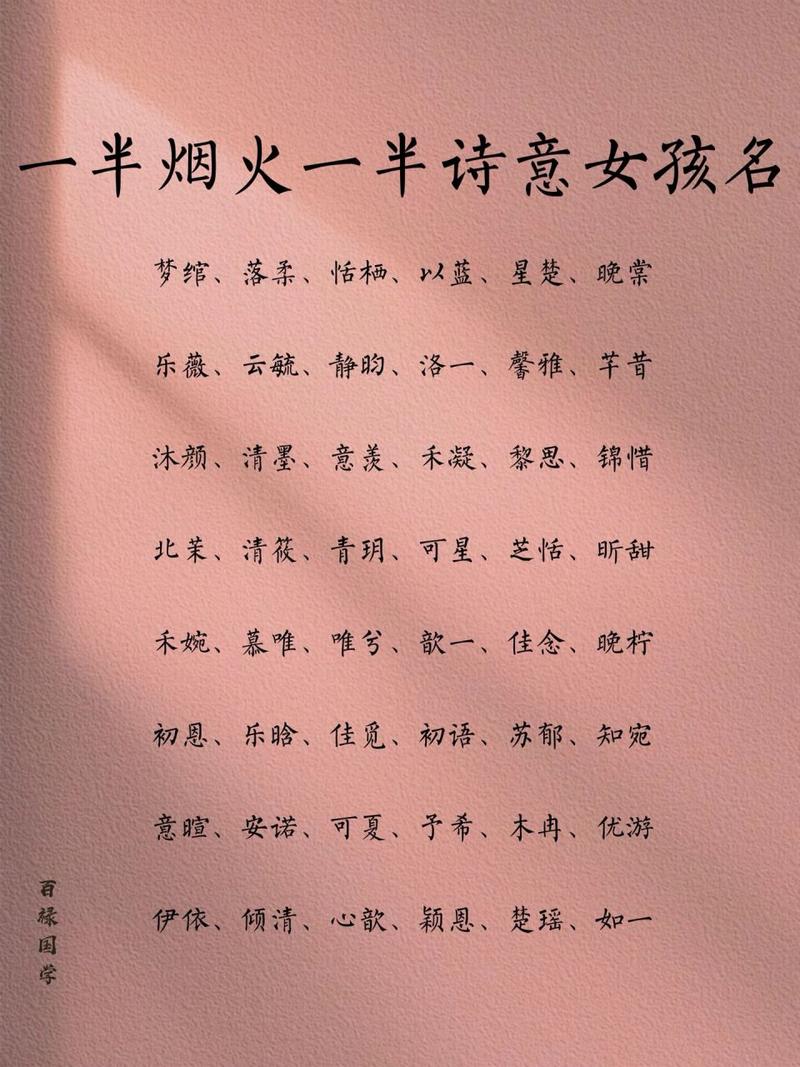 一半烟火一半诗意女孩名
梦绾、落柔、恬栖、以蓝、星楚、晚棠
乐薇、云毓、静昀、洛一、馨雅、芊昔
沐颜、清墨、意羡、禾凝、黎思、锦惜
北茉、清筱、青玥、可星、芝恬、昕甜
禾婉、慕唯、唯兮、歆一、佳念、晚柠
初恩、乐晗、佳觅、初语、苏郁、知宛
意暄、安诺、可夏、予希、木冉、优游
伊依、倾清、心歆、颖恩、楚瑶、如一
百禄国学